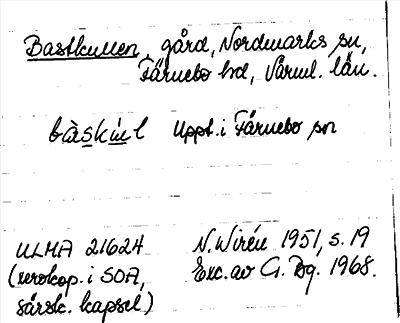 Bastkullen, gård, Nordmarks sn,
Färnebo hd, Värml. län.
Uppt. i Färnebo sn
ULMA 21624 N. Wirén 1951, s. 19
(xerokop. i SOA, Exc. av G. Bg. 1968.
särsk. kapsel)